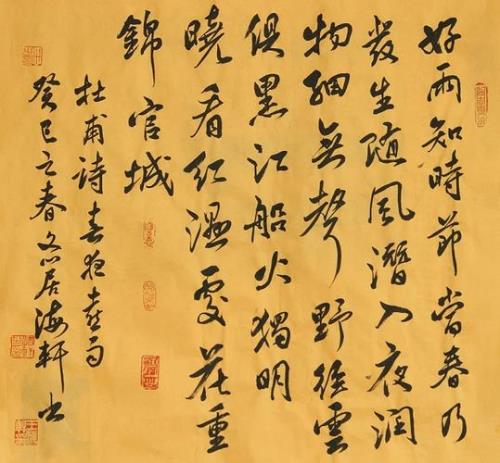 好雨知時節當春乃
發生隨風潛入夜潤
物細無聲野徑雲
俱黑江船火獨明
曉看紅濕處花重
錦官城
杜甫詩春夜喜雨
癸巳之春文心居海軒书